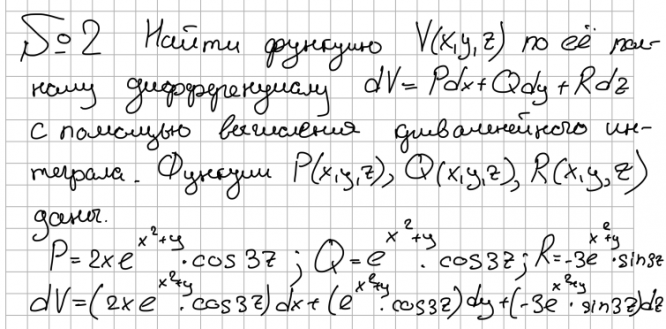 №2 Найти функцию V(x,y,z) по её пол-
ному дифференциалу dV = Pdx + Qdy + Rdz
с помощью вычисления криволинейного ин-
теграла. Функции P(x,y,z), Q(x,y,z), R(x,y,z)
даны.
P = 2xe^{x²+y} · cos3z ; Q = e^{x²+y} · cos3z ; R = -3e^{x²+y} · sin3z
dV = (2xe^{x²+y} · cos3z)dx + (e^{x²+y} · cos3z)dy + (-3e^{x²+y} · sin3z)dz